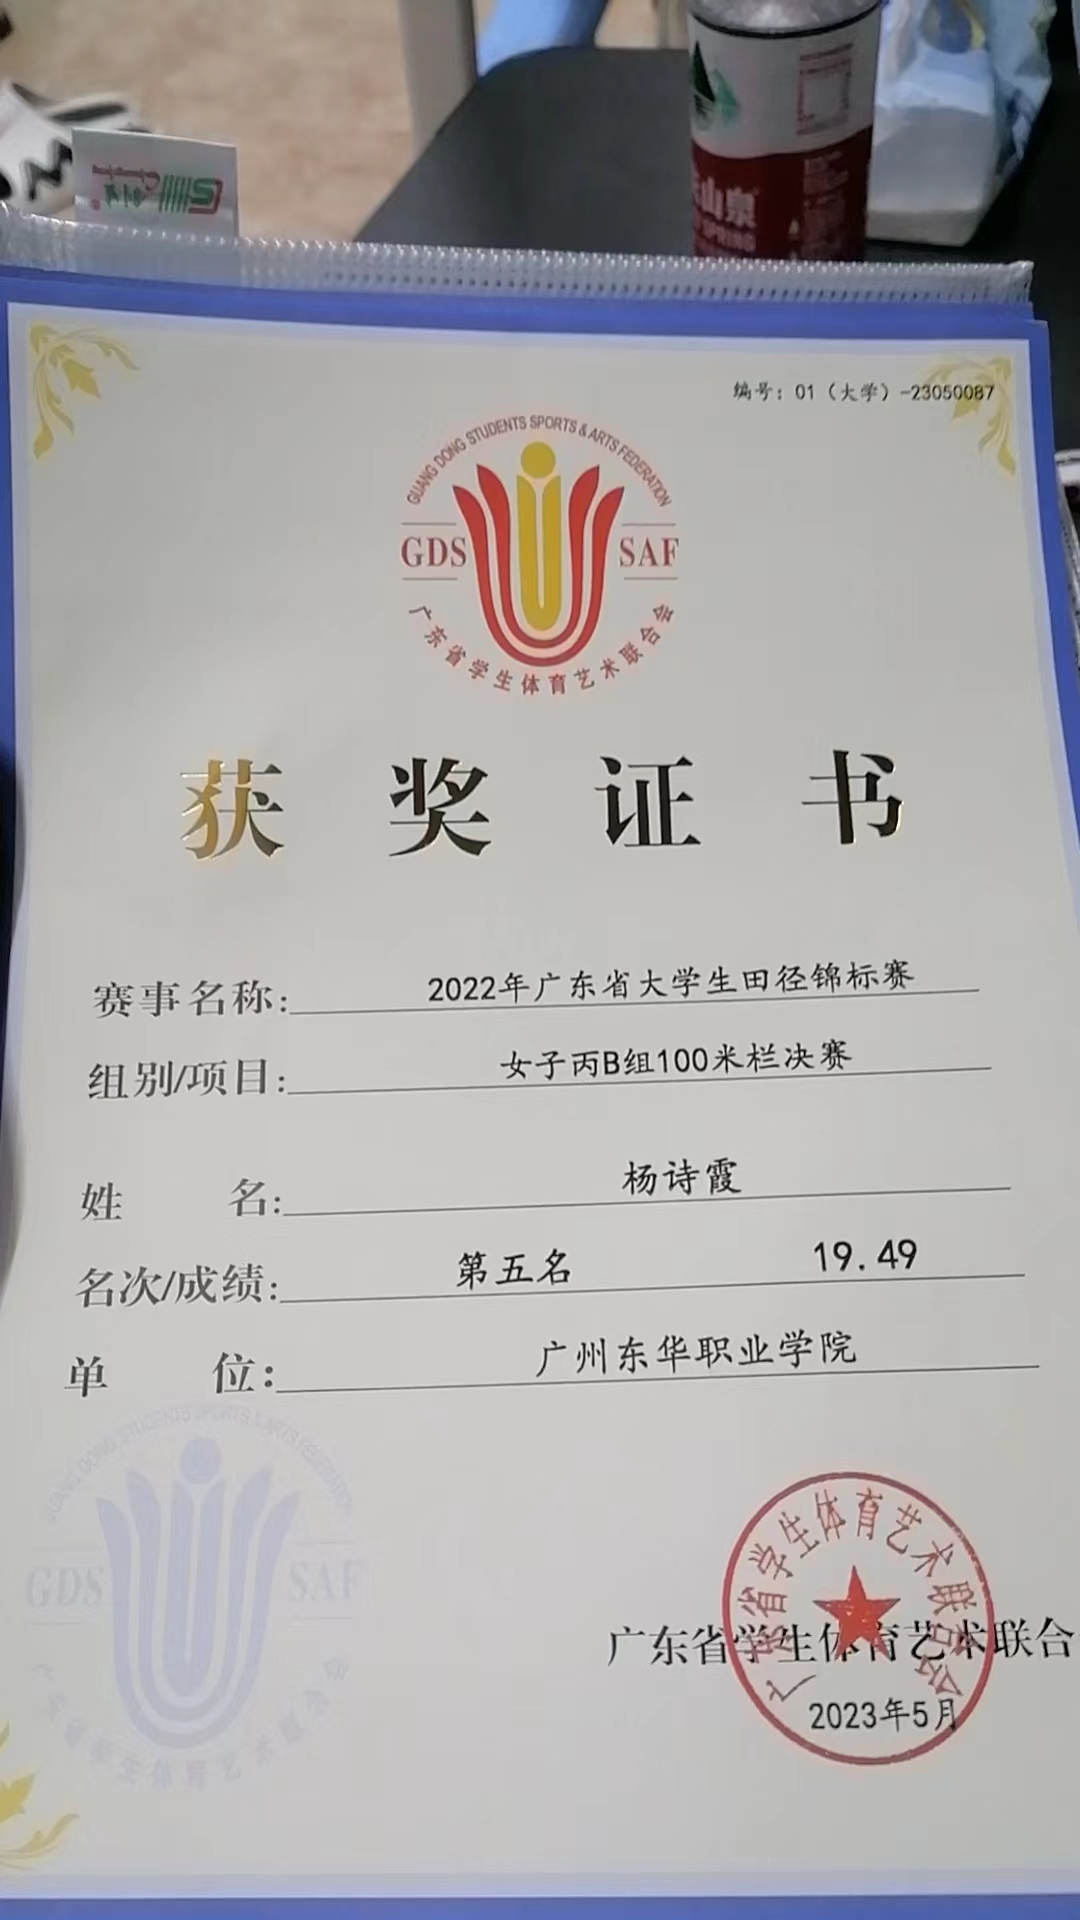 山泉
编号：01（大学）-23050087
GUANG DONG STUDENTS SPORTS & ARTS FEDERATION
GDS SAF
广东省学生体育艺术联合会
获奖证书
赛事名称: 2022年广东省大学生田径锦标赛
组别/项目: 女子丙B组100米栏决赛
姓 名: 杨诗霞
名次/成绩: 第五名 19.49
单 位: 广州东华职业学院
GUANG DONG STUDENTS SPORTS & ARTS FEDERATION
GDS SAF
广东省学生体育艺术联合会
广东省学生体育艺术联合会
广东省学生体育艺术联合
2023年5月